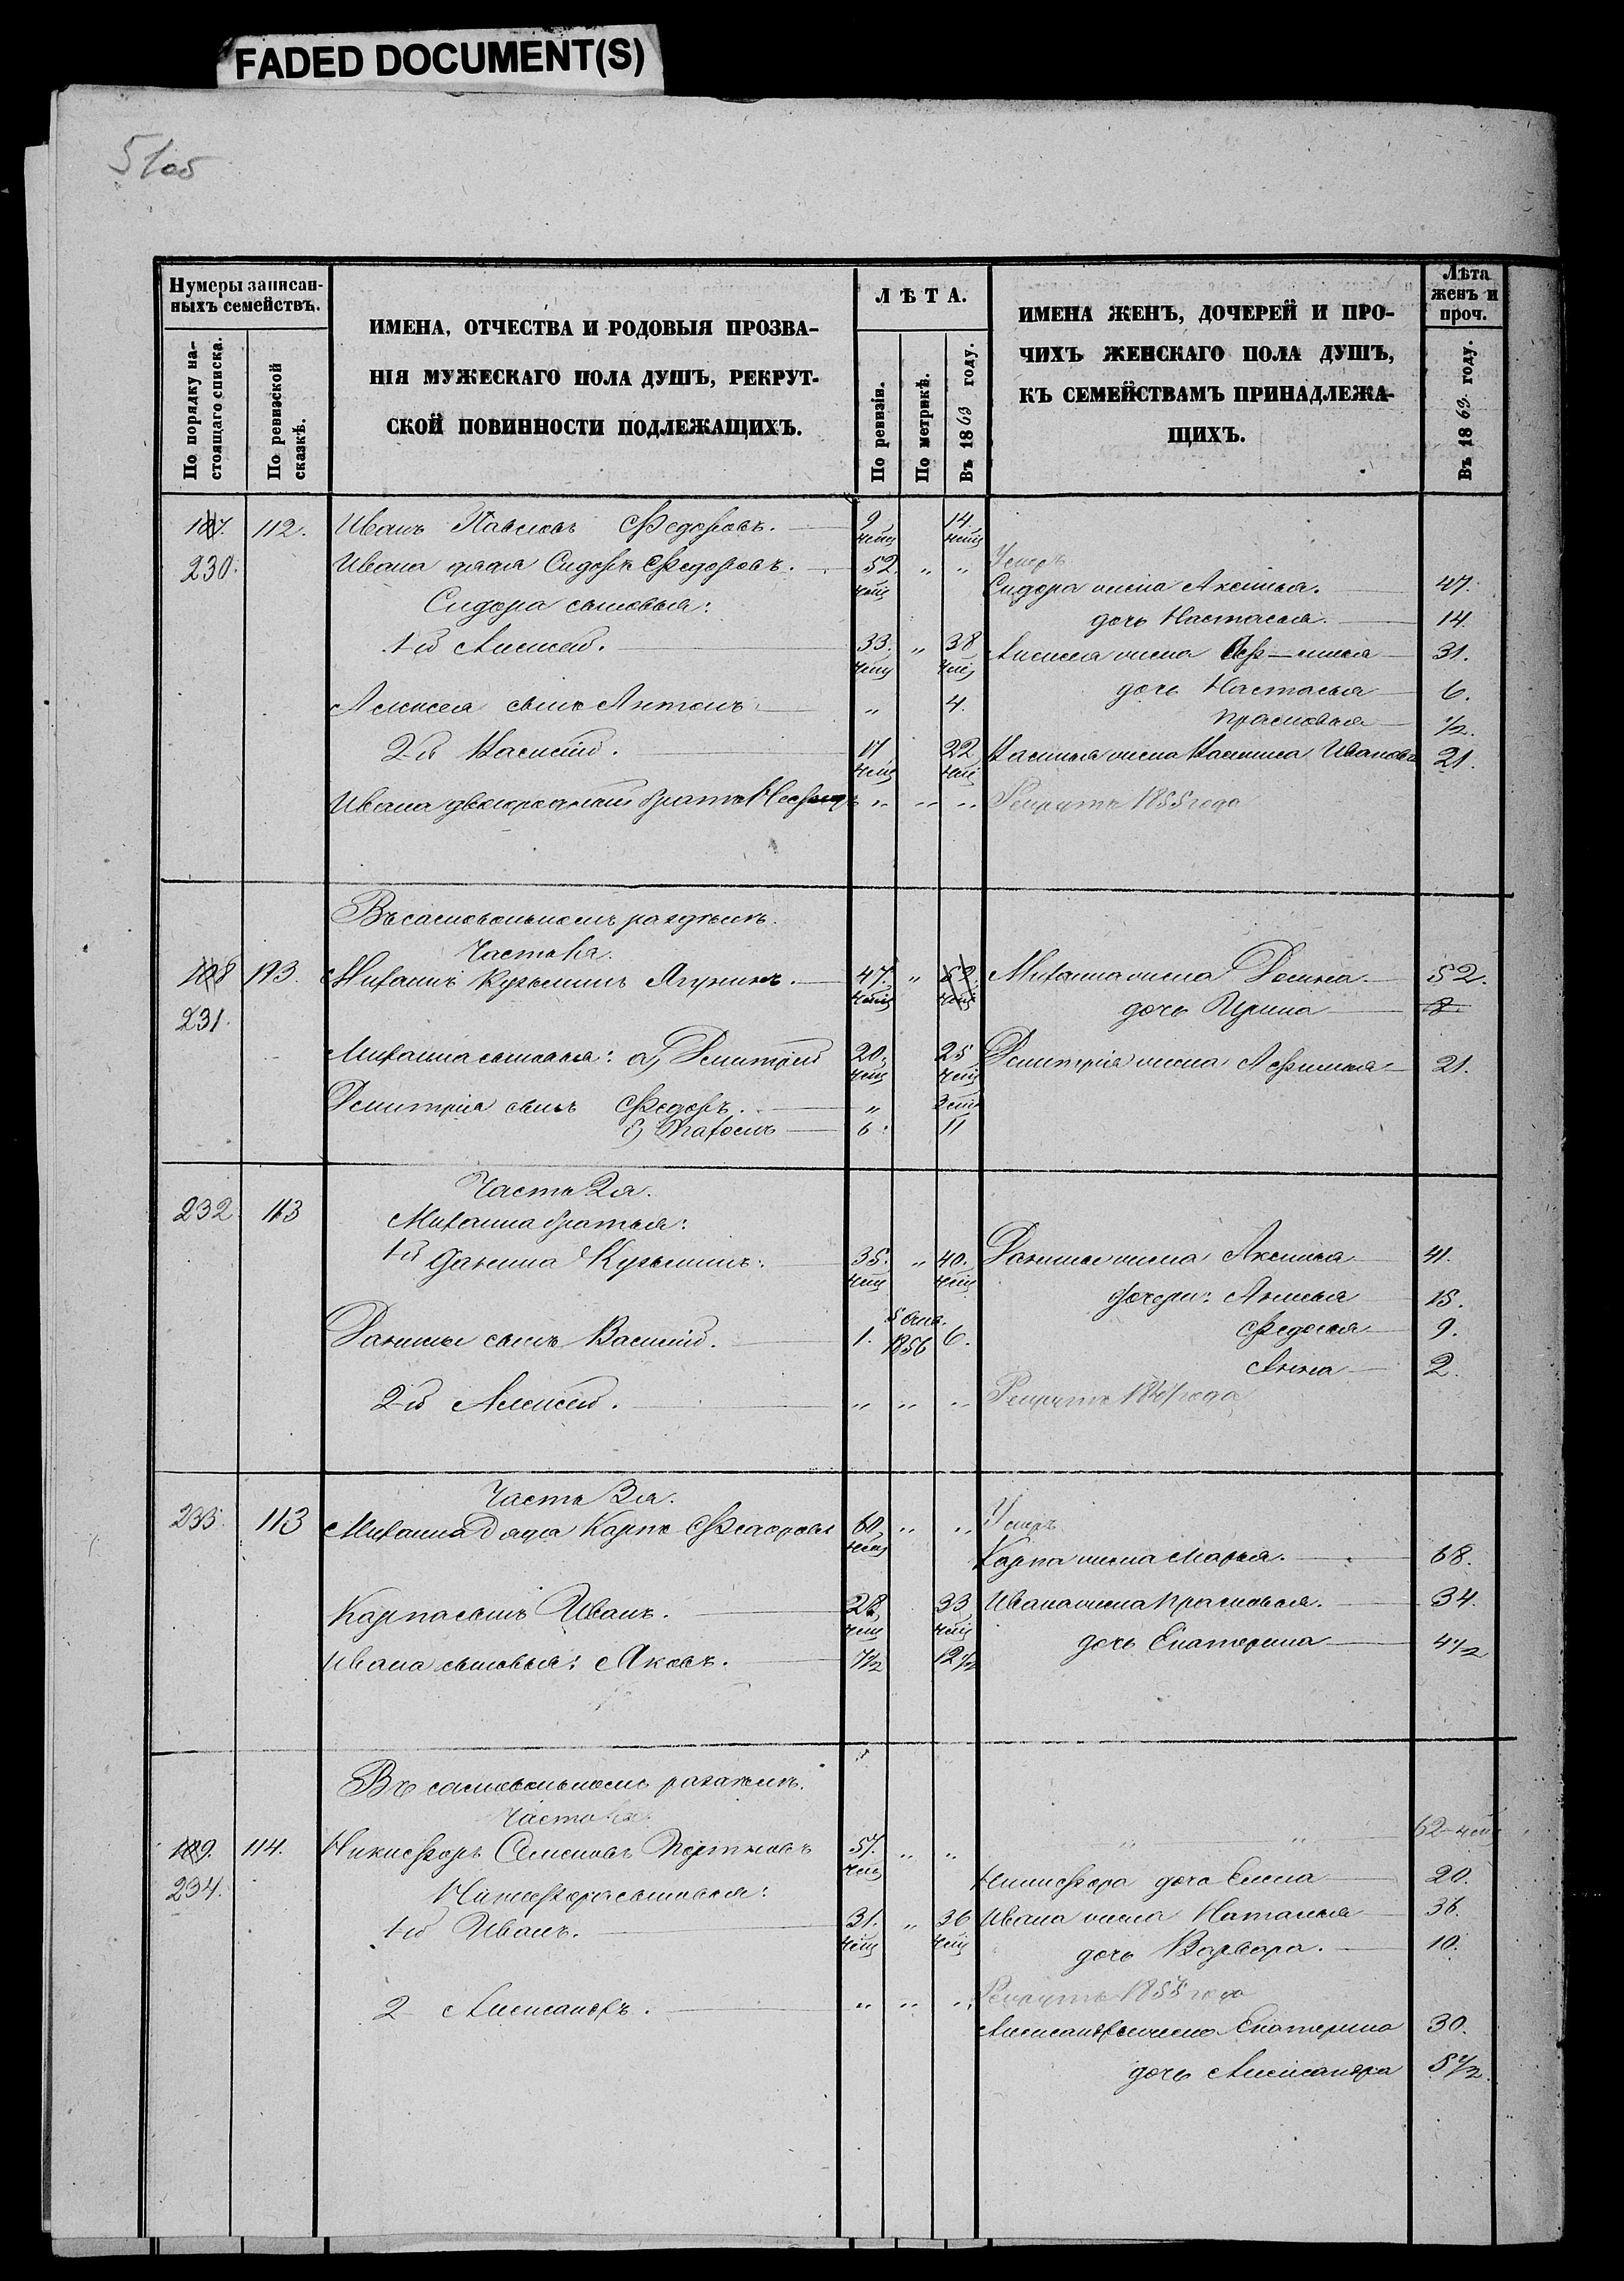 FADED DOCUMENT(S)
51об
Нумеры записан-
ныхъ семействъ.
По порядку на-
стоящаго списка.
По ревизской
сказкѣ.
ИМЕНА, ОТЧЕСТВА И РОДОВЫЯ ПРОЗВА-
НІЯ МУЖЕСКАГО ПОЛА ДУШЪ, РЕКРУТ-
СКОЙ ПОВИННОСТИ ПОДЛЕЖАЩИХЪ.
ЛѢТА.
По ревизіи.
По метрикѣ.
Въ 1863 году.
ИМЕНА ЖЕНЪ, ДОЧЕРЕЙ И ПРО-
ЧИХЪ ЖЕНСКАГО ПОЛА ДУШЪ,
КЪ СЕМЕЙСТВАМЪ ПРИНАДЛЕЖА-
ЩИХЪ.
Лѣта
женъ и
проч.
Въ 1863 году.
107. 112. Иванъ Павловъ Федоровъ. 9 14.
230. Ивана дядя Сидоръ Федоровъ. 52 " " Умеръ
Сидора жена Аксинья. 47.
Сидора сыновья:
дочь Настасья. 14.
1й Алексей. 33. " 38 Алексея жена 31.
дочь Настасья 6.
Алексея сынъ Антонъ " 4.
Прасковья 1/2.
2й Василий. 17 22 Василья жена Иванова 21.
Ивана двоюродный братъ " " " Рекрутъ 1855 года
Въ самовольномъ разделѣ.
Часть 1я.
108 113. Михаилъ Кузьминъ 47. " 52. Михаила жена 52.
дочь Ирина 8.
231.
Михаила сыновья: а, Дмитрий 20. 25 Дмитрія жена Афимья 21.
Дмитрия сынъ Федоръ. "
б, Пахомъ 6. 11
Часть 2я.
232 113 Михаила братья:
1й Данила Кузьминъ. 35. " 40. Данилы жена Аксинья 41.
дочери: Анисья 15.
Данилы сынъ Василий. 1. 1856 6. Федосья 9.
Анна 2.
2й Алексей. " " " Рекрутъ 1847 года
Часть 3я.
233. 113 Михаила дядя Карпъ Федоровъ 60. " " Умеръ
Карпа жена Марья. 68.
Карпа сынъ Иванъ. 28, 33, Ивана жена Прасковья. 34.
дочь Екатерина 4 1/2
Ивана сыновья: Яковъ. 7 1/2 12 1/2
Въ самовольномъ разделѣ.
Часть 1я
109. 114. Никифоръ Семеновъ 57. " " " " 62
234. Никифора дочь Елена 20.
Никифора сыновья:
1й Иванъ. 31. " 36 Ивана жена Наталья 36.
дочь Варвара. 10.
2 Александръ. " " " Рекрутъ 1855 года
Александра жена Екатерина 30.
дочь Александра 5 1/2.